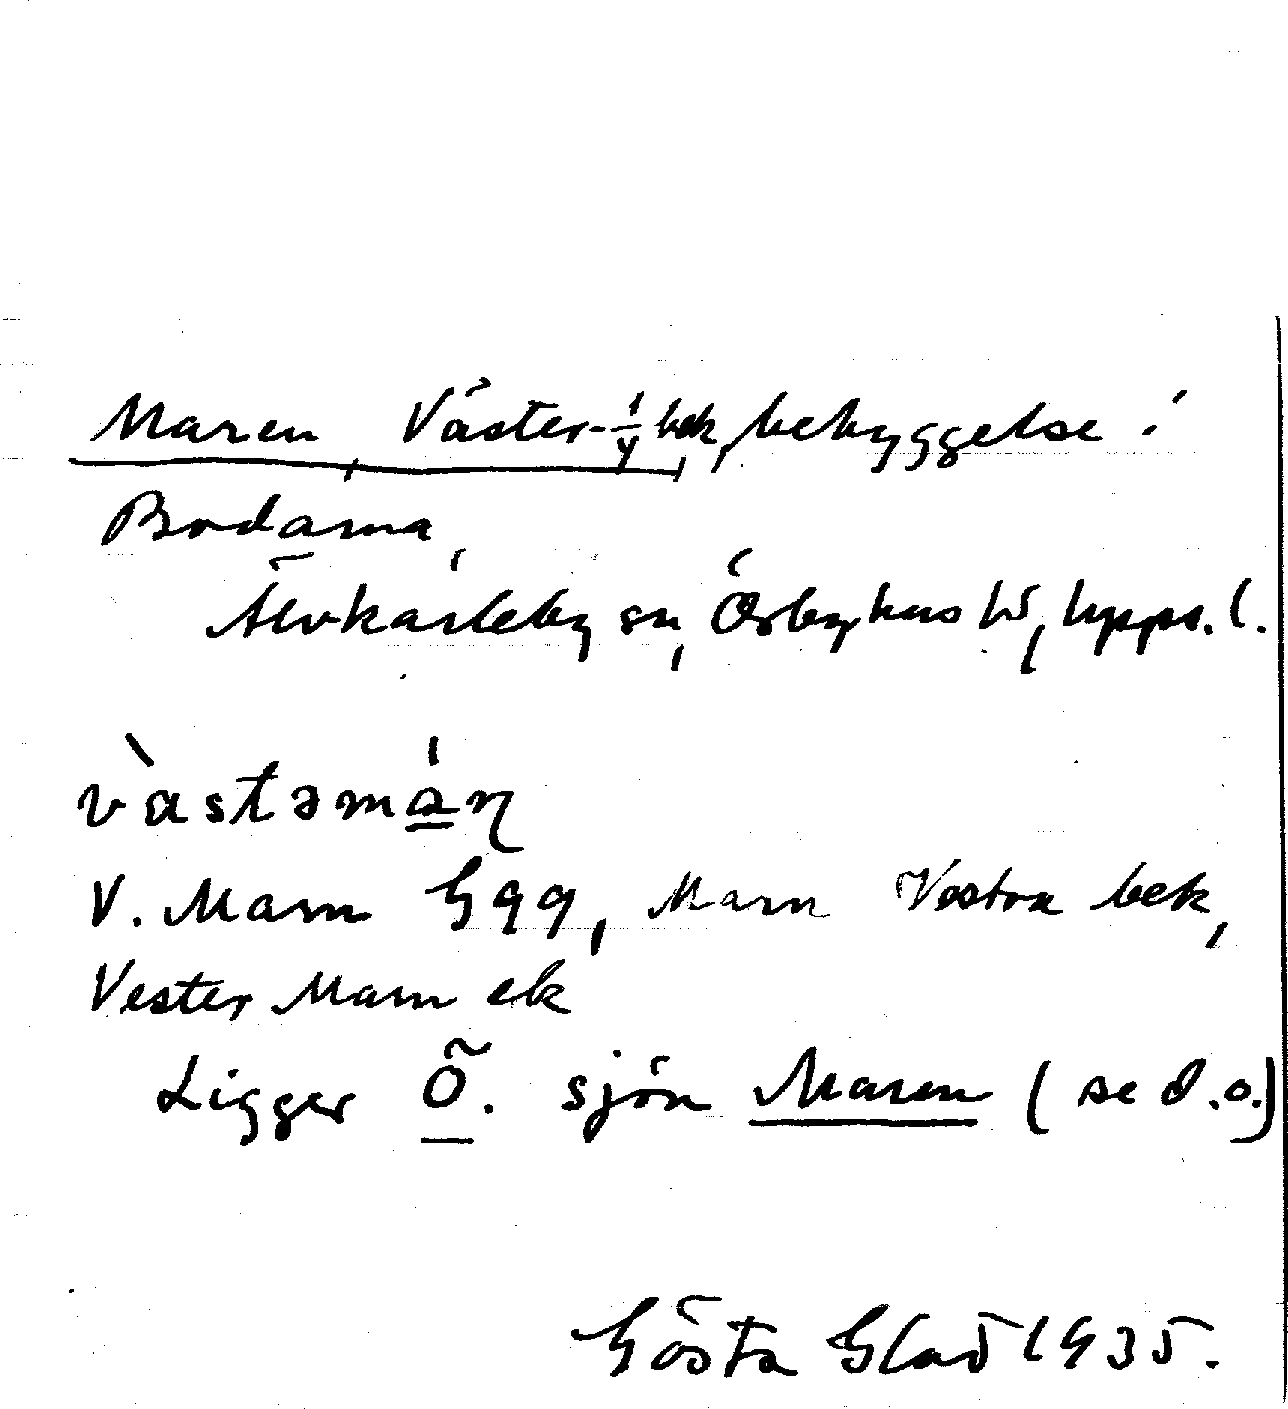 Maren, Väster- 1/4 bek, bebyggelse i
Bodarna,
Älvkarleby sn, Örbyhus hd, Upps. l.
vàstəmáɳ
V. Marn Ggg, Marn Vestra bek,
Vester Marn ek
Ligger Ö. sjön Maren (se d.o.)
Gösta Glad 1935.